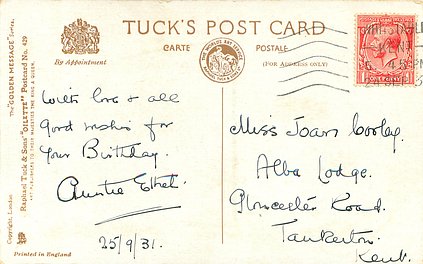 TUCK'S POST CARD
CARTE POSTALE
(FOR ADDRESS ONLY)
By Appointment
The "GOLDEN MESSAGE" Series.
Raphael Tuck & Sons' "OILETTE" Postcard No. 429
ART PUBLISHERS TO THEIR MAJESTIES THE KING & QUEEN.
Copyright, London
Printed in England
With love & all
Good wishes for
Your Birthday.
Auntie Ethel.
25/9/31.
Miss Joan Cooley.
Alba Lodge.
Gloucester Road.
Tankerton.
Kent.